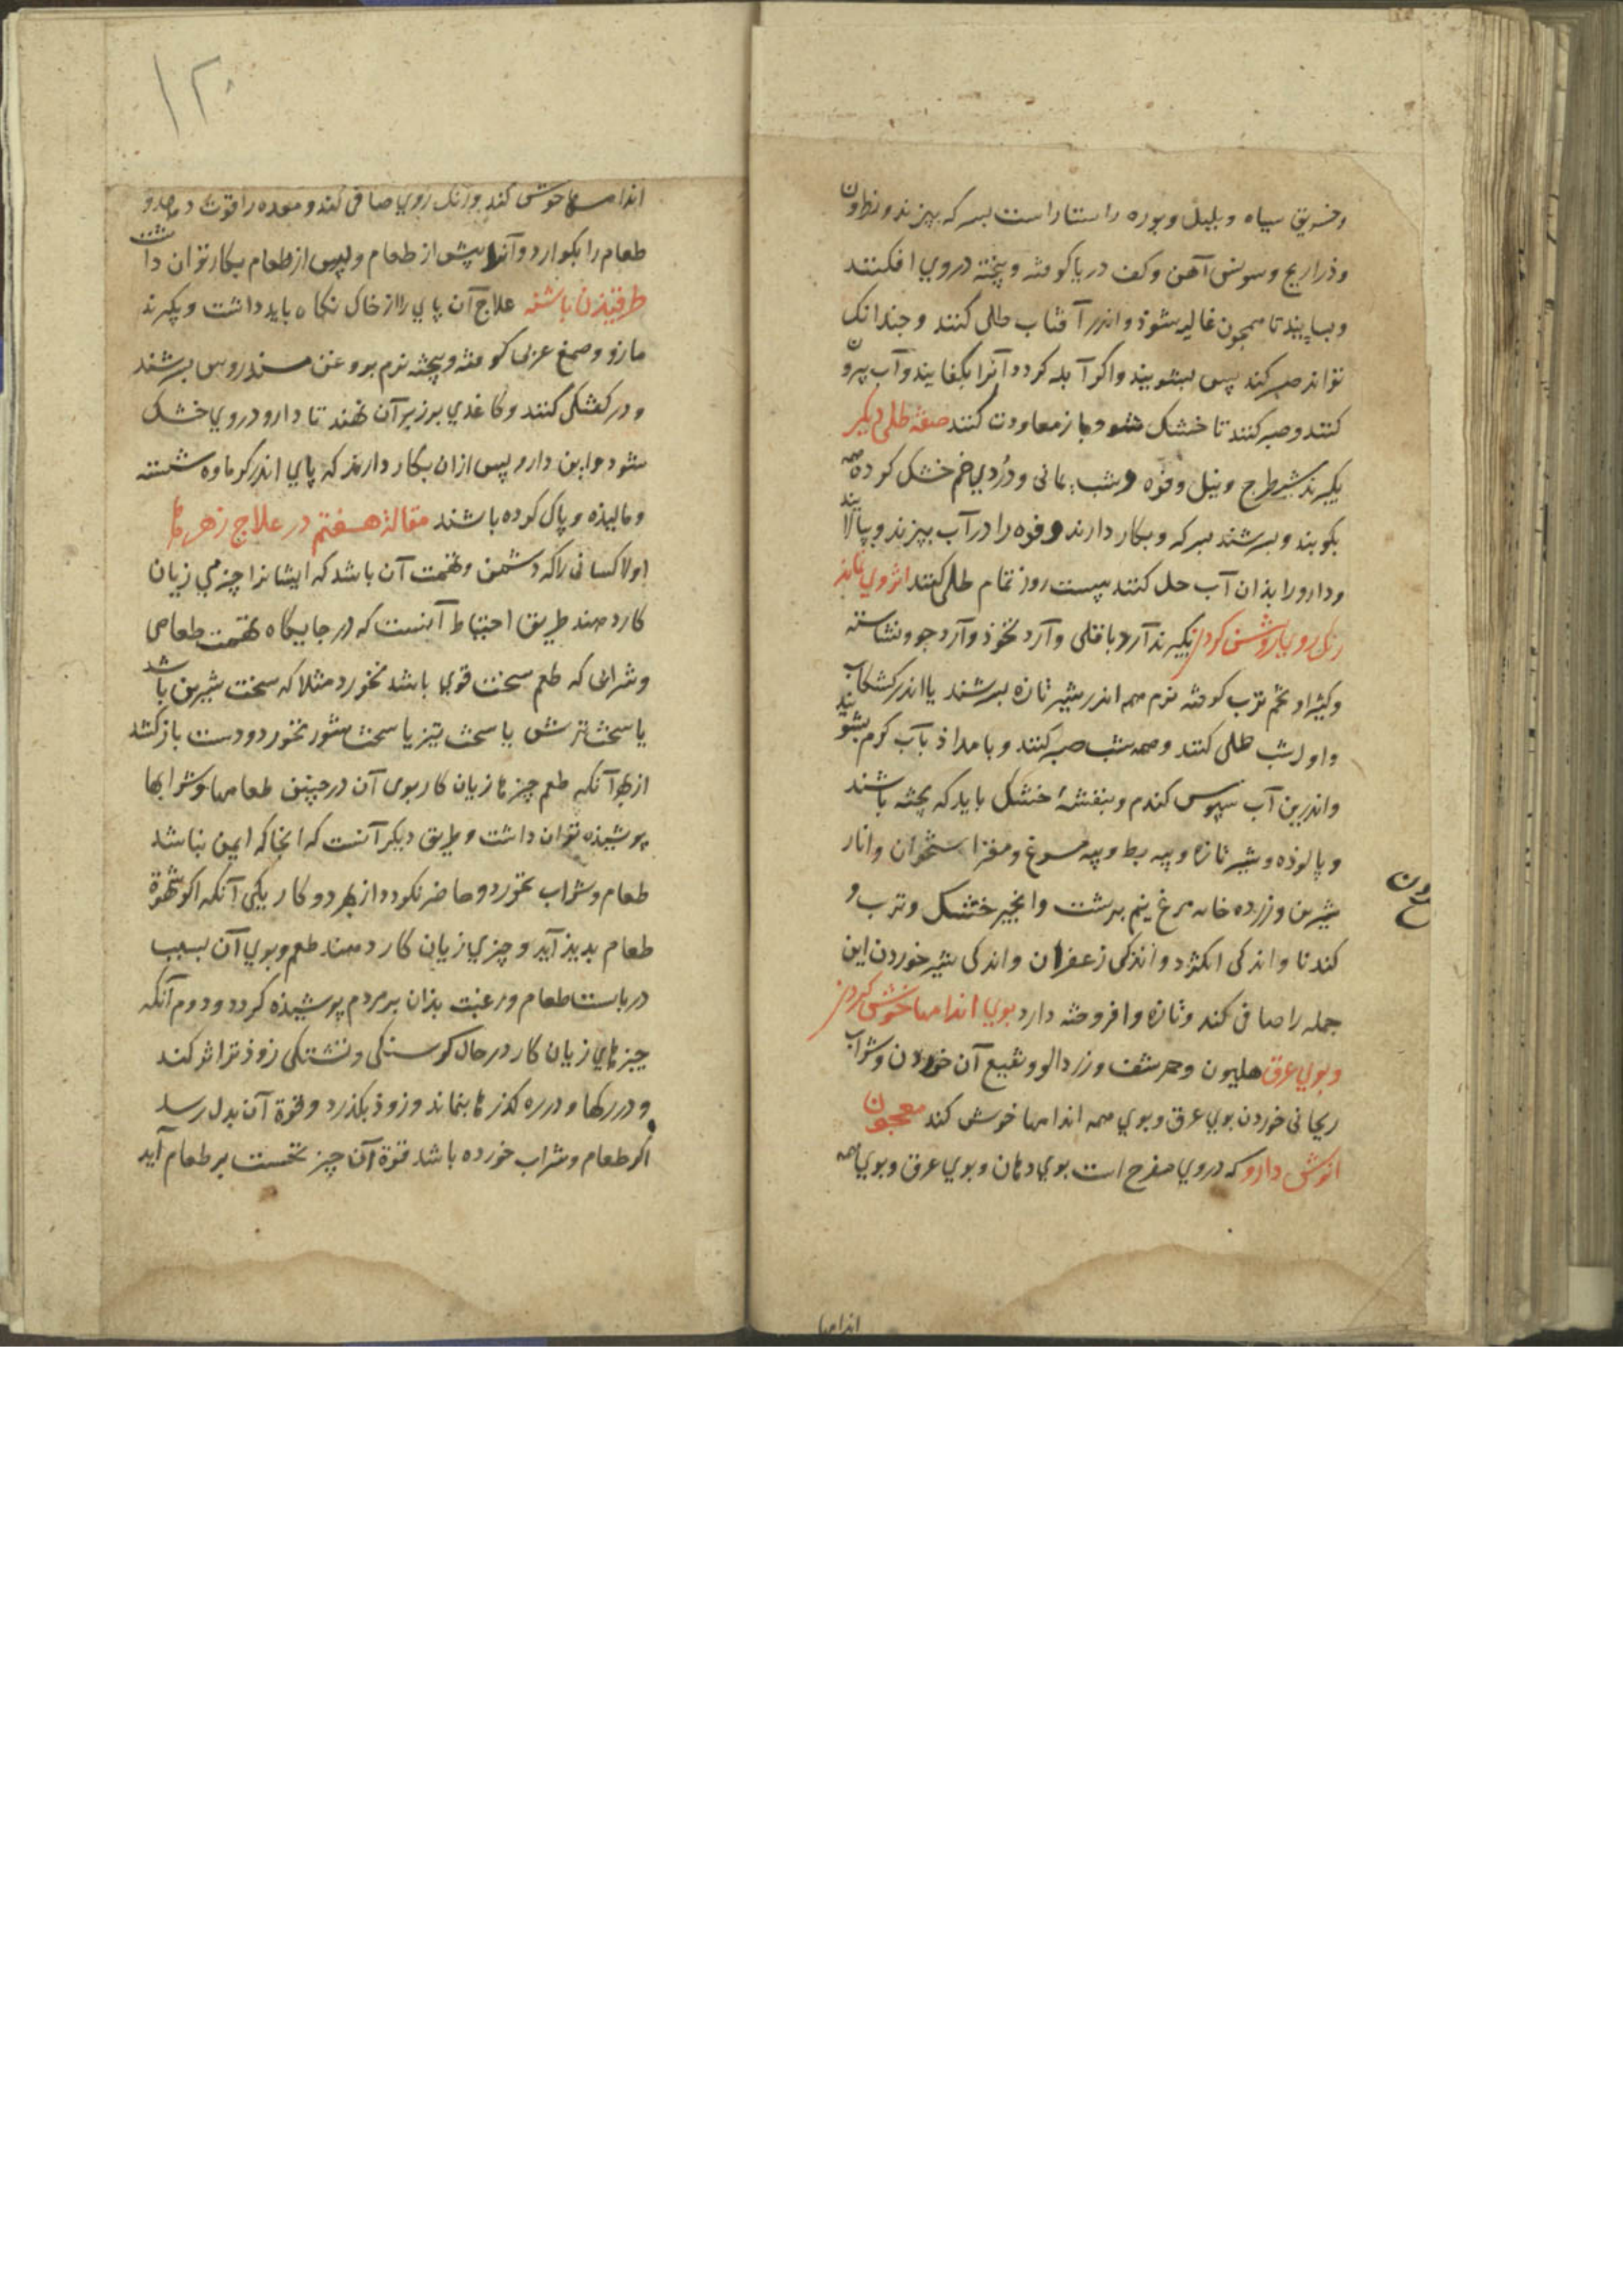 وخربق سیاه و پلپل و بوره راستاراست بسرکه بپزند و نطرون
و ذراریح و سونش آهن و کف دریا کوفته و پخته در وی افکنند
و بسایند تا همچون غالیه شوذ و اندر آفتاب طلی کنند و جندانک
تواند صبر کند پس بشویند و اکر آبله کردد آنرا بکفایند و آب بیرون
کنند و صبر کنند تا خشک شود و باز معاودت کنند صفة طلی دیکر
بکیرند شیطرج و نیل و فوه و شب یمانی و دُردی خم خشک کرده همه
بکوبند و بسرشند بسرکه و بکار دارند و فوه را در آب بپزند و بپالایند
و دارو را بذان آب حل کنند بیست روز تمام طلی کنند اثر وی نماند
رنک روی را روشن کردن بکیرند آرد باقلی و آرد نخوذ و آرد جو و نشاسته
و کثیرا و تخم ترب کوفته نرم همه اندر شیر تازه بسرشند یا اندر کشکاب
و اول شب طلی کنند و همه شب صبر کنند و بامداذ بآب کرم بشویند
و اندرین آب سپوس کندم و بنفشهٔ خشک باید که پخته باشند
و پالوذه و شیر تازه و پیه بط و پیه مرغ و مغز استخوان و انار
شیرین و زرده خایه مرغ نیم برشت و انجیر خشک و ترب و
کندنا و اندکی انکژد و اندکی زعفران و اندکی سیر خوردن این
جمله را صافی کند و تازه و افروخته دارد بوی اندامها خوش کردن
و بوی عرق هلیون و حرشف و زردالو و نقیع آن خوردن و شراب
ریحانی خوردن بوی عرق و بوی همه اندامها خوش کند معجون
انوش دارو که در وی مفرح است بوی دهان و بوی عرق و بوی همه
اندامها
۱۲۰
اندامها خوش کند و رنک روی صافی کند و معده را قوت دهد و
طعام را بکوارد و آنرا پیش از طعام و پس از طعام بکار توان داشت
طرقیذن پاشنه علاج آن پای را از خاک نکاه باید داشت و بکیرند
مازو و صمغ عربی کوفته و پیخته نرم بروغن سندروس بسرشند
و در کفتکی کنند و کاغدی برزبر آن نهند تا دارو در وی خشک
شود و این دارو پس ازان بکار دارند که پای اندر کرماوه شسته
و مالیذه و پاک کرده باشند مقالهٔ هفتم در علاج زهرها
اولا کسانی را که دشمن و تهمت آن باشد که ایشانرا چیزی زیان
کار دهند طریق احتیاط آنست که در جایکاه تهمت طعامی
و شرابی که طعم سخت قوی باشد نخورد مثلا که سخت شیرین باشد
یا سخت ترش یا سخت تیز یا سخت شور نخورد و دست باز کشد
از بهر آنکه طعم چیزها زیان کار بوی آن در چنین طعامها و شرابها
پوشیذه توان داشت و طریق دیکر آنست که انجا که ایمن نباشد
طعام و شراب نخورد و حاضر نکردد از بهر دو کار یکی آنکه اکر شهوة
طعام بدیذ آید و چیزی زیان کار دهند طعم و بوی آن بسبب
دربایست طعام و رغبت بذان بر مردم پوشیذه کردد و دوم آنکه
چیزهای زیان کار در حال کرسنکی و تشنکی زوذتر اثر کند
و در رکها و در ره کذرها بنماند و زوذ بکذرد و قوة آن بدل رسد
اکر طعام و شراب خورده باشد قوة آن چیز نخست بر طعام آید